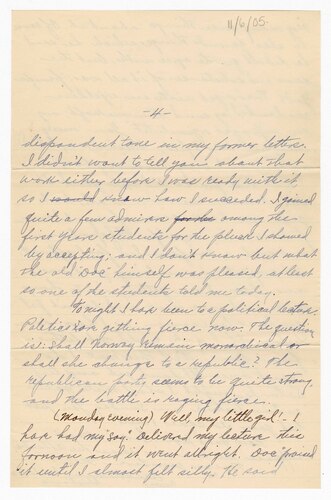 11/6/05.
-4-
dispondent tone in my former letter.
I didn't want to tell you about that
work either before I was ready with it
so I would know how I succeeded. I gained
quite a few admirers for the among the
first year students for the pluck I showed
by accepting; and I don't know but what
the old Doc himself was pleased, at least
so one of the students told me today.
Tonight I hav been to a political lecture.
Politics is getting fierce now. The question
is: Shall Norway remain monarchical or
shall she change to a republic? The
republican party seems to be quite strong
and the battle is raging fierce.
(Monday evening) Well, my little girl! - I
hav had my "say". Delivered my lecture this
fornoon and it went allright. "Doc" praised
it until I almost felt silly. He said